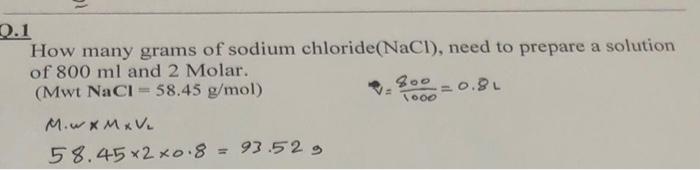 Q.1
How many grams of sodium chloride(NaCl), need to prepare a solution
of 800 ml and 2 Molar.
(Mwt NaCl = 58.45 g/mol)
V = 800/1000 = 0.8 L
M.w x M x VL
58.45 x 2 x 0.8 = 93.52 g